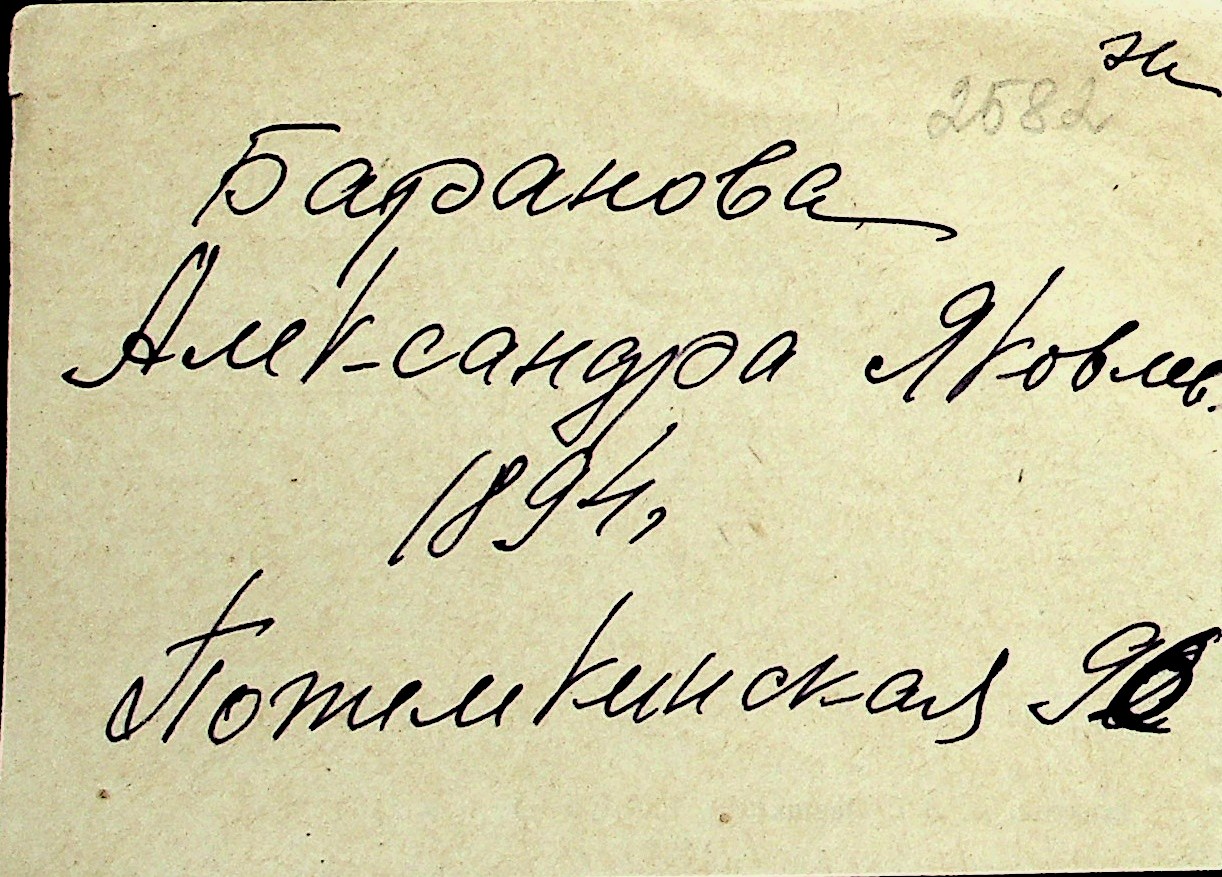 2582
Баранова
Александра Яковлев.
1894,
Потемкинская